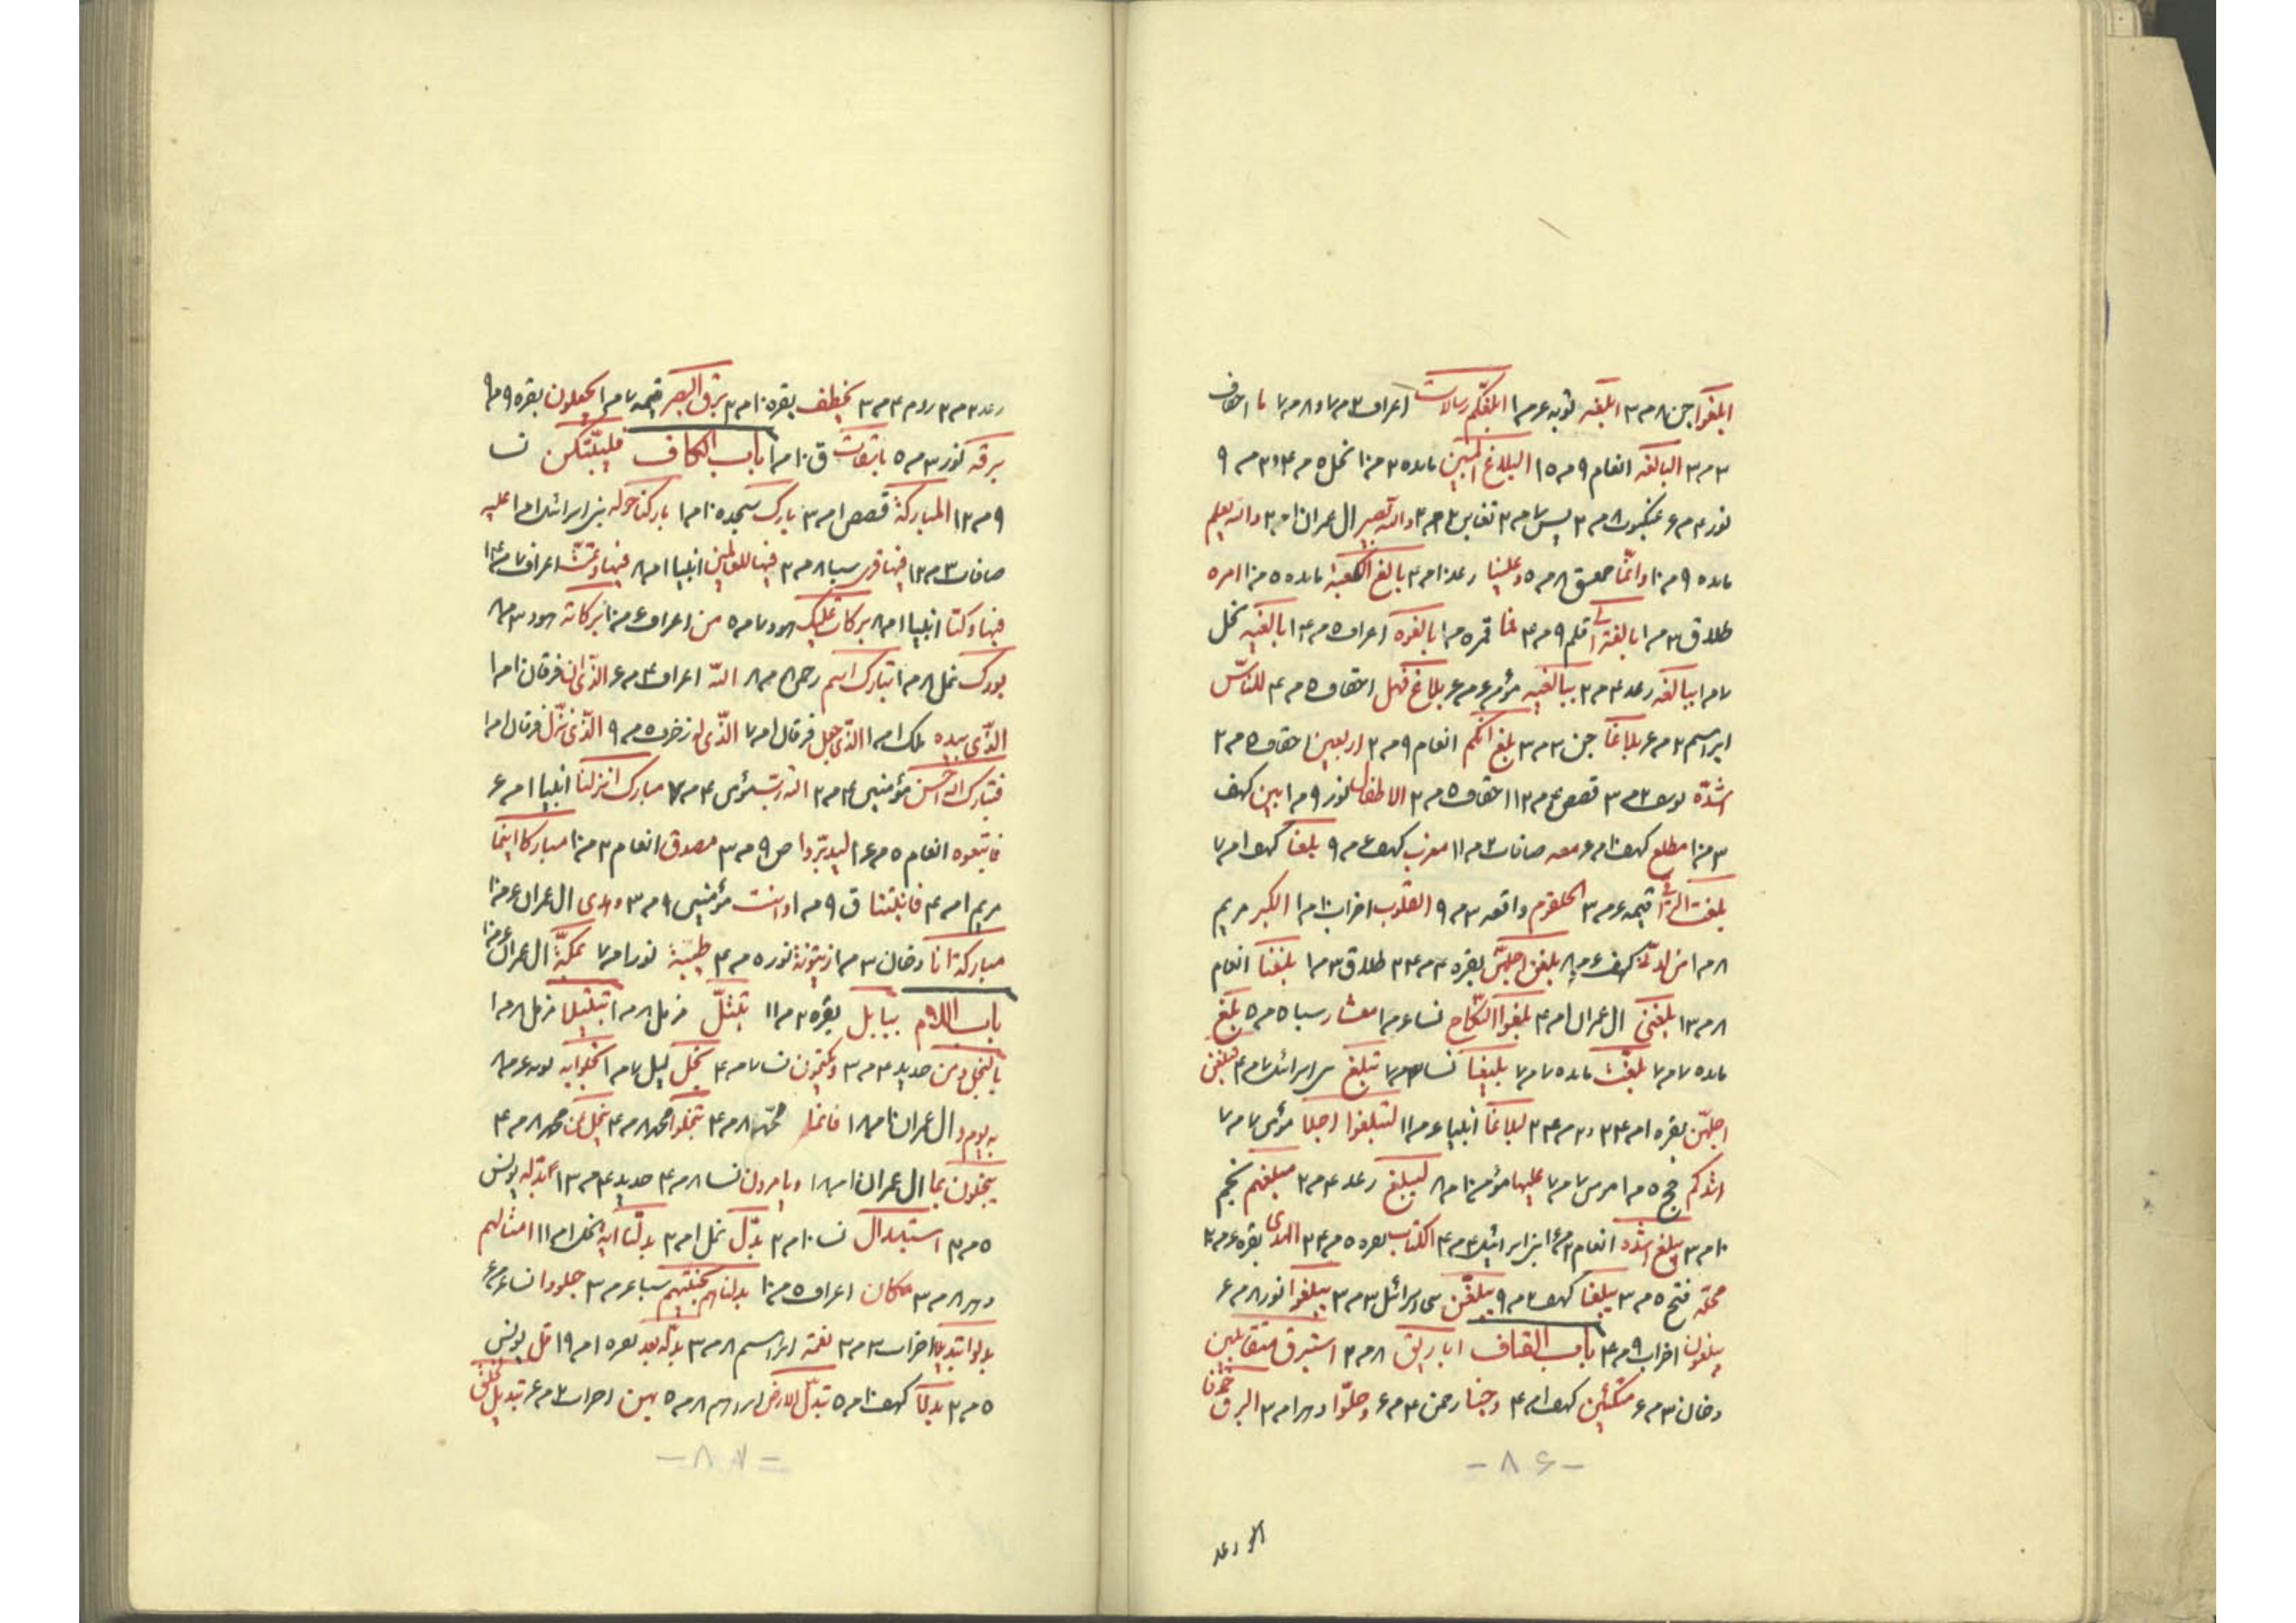 ابلغوا جن ۸ مـ ۳ ابلغه توبه ۶ مـ ۱ ابلغکم رسالات اعراف ۳ مـ ۷ و ۸ مـ ۷ ما احقاف
۳ مـ ۳ البالغه انعام ۹ مـ ۱۵ البلاغ المبین مائده ۲ مـ ۱۰ نحل ۵ مـ ۴ و ۳ مـ ۹
نور ۴ مـ ۶ عنکبوت ۸ مـ ۲ یس ۷ مـ ۲ تغابن ۲ مـ ۲ والله بصیر ال عمران ۱۰ مـ ۲ والله یعلم
مائده ۹ مـ ۱۰ وانما حمعسق ۸ مـ ۵ وعلینا رعد ۱۰ مـ ۴ بالغ الکعبة مائده ۵ مـ ۱۰ امره
طلاق ۳ مـ ۱ بالغة قلم ۹ مـ ۳ فما قمر ۵ مـ ۱ بالغوه اعراف ۵ مـ ۱۴ بالغیه نحل
۷ مـ ۱ ببالغه رعد ۴ مـ ۲ ببالغیه مؤمن ۶ مـ ۶ بلاغ فهل احقاف ۵ مـ ۴ للناس
ابراهیم ۲ مـ ۶ بلاغا جن ۳ مـ ۳ بلغ ائنکم انعام ۹ مـ ۲ اربعین احقاف ۵ مـ ۲
اشده یوسف ۲ مـ ۳ قصص ۴ مـ ۱۲ احقاف ۵ مـ ۲ الاطفال نور ۹ مـ ۱ بین کهف
۳ مـ ۱۰ مطلع کهف ۱۰ مـ ۶ معه صافات ۲ مـ ۱۱ مغرب کهف ۶ مـ ۹ بلغا کهف ۱ مـ ۷
بلغت التراقی قیمه ۶ مـ ۳ الحلقوم واقعه ۳ مـ ۹ القلوب احزاب ۱۰ مـ ۱ الکبر مریم
۸ مـ ۱ من لدنی کهف ۶ مـ ۸ بلغن اجلهن بقره ۴ مـ ۲۳ طلاق ۳ مـ ۱ بلغنا انعام
۸ مـ ۱۳ بلغنی ال عمران ۱ مـ ۴ بلغوا النکاح نسا ۶ مـ ۱ معشار سبا ۵ مـ ۵ بلغ
مائده ۷ مـ ۷ بلغت مائده ۷ مـ ۷ بلیغا نسا ۳ مـ ۷ تبلغ بنی اسرائیل ۷ مـ ۴ فبلغن
اجلهن بقره ۱ مـ ۲۳ و ۲ مـ ۲۳ لبلاغا انبیا ۶ مـ ۱۱ لتبلغوا اجلا مؤمن ۷ مـ ۷
اشدکم حج ۵ مـ ۱ مؤمن ۷ مـ ۷ علیها مؤمن ۱۰ مـ ۸ لیبلغ رعد ۴ مـ ۲ مبلغهم نجم
۱۰ مـ ۳ یبلغ اشده انعام ۳ مـ ۱۶ بنی اسرائیل ۴ مـ ۴ الکتاب بقره ۵ مـ ۲۳ الهدی بقره ۶ مـ ۲
محله فتح ۵ مـ ۳ یبلغا کهف ۲ مـ ۹ یبلغن بنی اسرائیل ۳ مـ ۳ یبلغوا نور ۸ مـ ۶
یبلغون احزاب ۹ مـ ۴ باب القاف اباریق ۸ مـ ۲ استبرق متقابلین
دخان ۳ مـ ۶ متکئین کهف ۱ مـ ۴ وجنا رحمن ۴ مـ ۶ وحلوا دهر ۱ مـ ۲ البرق خوفا
- ۸۶ -
رعد
رعد ۲ مـ ۲ روم ۴ مـ ۳ یخطف بقره ۱۰ مـ ۲ برق البصر قیمه ۷ مـ ۱ یجعلون بقره ۹ مـ ۹
برقه نور ۳ مـ ۵ باسقات ق ۱۰ مـ ۱ باب الکاف فلیبتکن نسا
۹ مـ ۱۲ المبارکة قصص ۱ مـ ۳ بارک سجده ۱۰ مـ ۱ بارکنا حوله بنی اسرائیل ۱ مـ ۱ علیه
صافات ۳ مـ ۱۲ فیها قری سبا ۸ مـ ۲ فیها للعالمین انبیا ۱ مـ ۸ فیها وتمت اعراف ۷ مـ ۱۴
فیها وکنا انبیا ۱ مـ ۸ برکات علیک هود ۷ مـ ۵ من اعراف ۶ مـ ۱۰ برکاته هود ۳ مـ ۸
بورک نمل ۸ مـ ۱ تبارک اسم رحمن ۸ مـ ۸ الله اعراف ۴ مـ ۶ الذی ان فرقان ۱۰ مـ ۱
الذی بیده ملک ۱ مـ ۱ الذی جعل فرقان ۱ مـ ۷ الذی له زخرف ۵ مـ ۹ الذی نزل فرقان ۱ مـ ۱
فتبارک الله احسن مؤمنین ۴ مـ ۲ الله رب مؤمن ۴ مـ ۷ مبارک انزلنا انبیا ۱ مـ ۶
فاتبعوه انعام ۵ مـ ۱۶ لیدبروا ص ۹ مـ ۳ مصدق انعام ۳ مـ ۱۰ مبارکا اینما
مریم ۱ مـ ۳ فانبتنا ق ۹ مـ ۱ وانت مؤمنین ۹ مـ ۳ وهدی ال عمران ۶ مـ ۱۰
مبارکة انا دخان ۳ مـ ۱ زیتونة نور ۵ مـ ۴ طیبة نور ۱ مـ ۷ ببکة ال عمران ۶ مـ ۱۰
باب اللام ببابل بقره ۲ مـ ۱۱ تبتل مزمل ۸ مـ ۱ تبتیلا مزمل ۸ مـ ۱
بالبخل ومن حدید ۴ مـ ۳ ویکتمون نسا ۷ مـ ۴ بخل لیل ۷ مـ ۱ بخلوا به توبه ۶ مـ ۸
به یوم ال عمران ۱۰ مـ ۱۸ فانما محمد ۸ مـ ۴ تبخلوا محمد ۸ مـ ۴ یبخل عن محمد ۸ مـ ۴
یبخلون بما ال عمران ۱۰ مـ ۱۸ ویامرون نسا ۸ مـ ۴ حدید ۴ مـ ۳ ابدله یونس
۵ مـ ۲ استبدال نسا ۱۰ مـ ۳ بدل نمل ۱ مـ ۲ بدلنا ایة نحل ۱ مـ ۱۱ امثالهم
دهر ۸ مـ ۳ مکان اعراف ۵ مـ ۱۰ بدلناهم بجنتیهم سبا ۶ مـ ۳ جلودا نسا ۶ مـ ۶
بدلوا تبدیلا احزاب ۳ مـ ۳ نعمة ابراهیم ۸ مـ ۳ بدله بعد بقره ۱ مـ ۱۹ قل یونس
۵ مـ ۲ بدلا کهف ۱۰ مـ ۵ تبدل الارض ابراهیم ۸ مـ ۵ بهن احزاب ۲ مـ ۶ تبدیل لخلق
- ۸۷ -